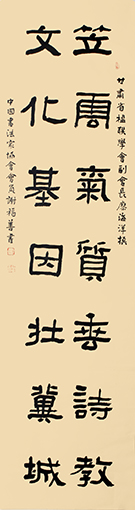 甘肅省楹聯學會副會長廖海洋撰
笠氣質垂詩教
文化基因壮冀城
中国書法家協會會員謝福善書